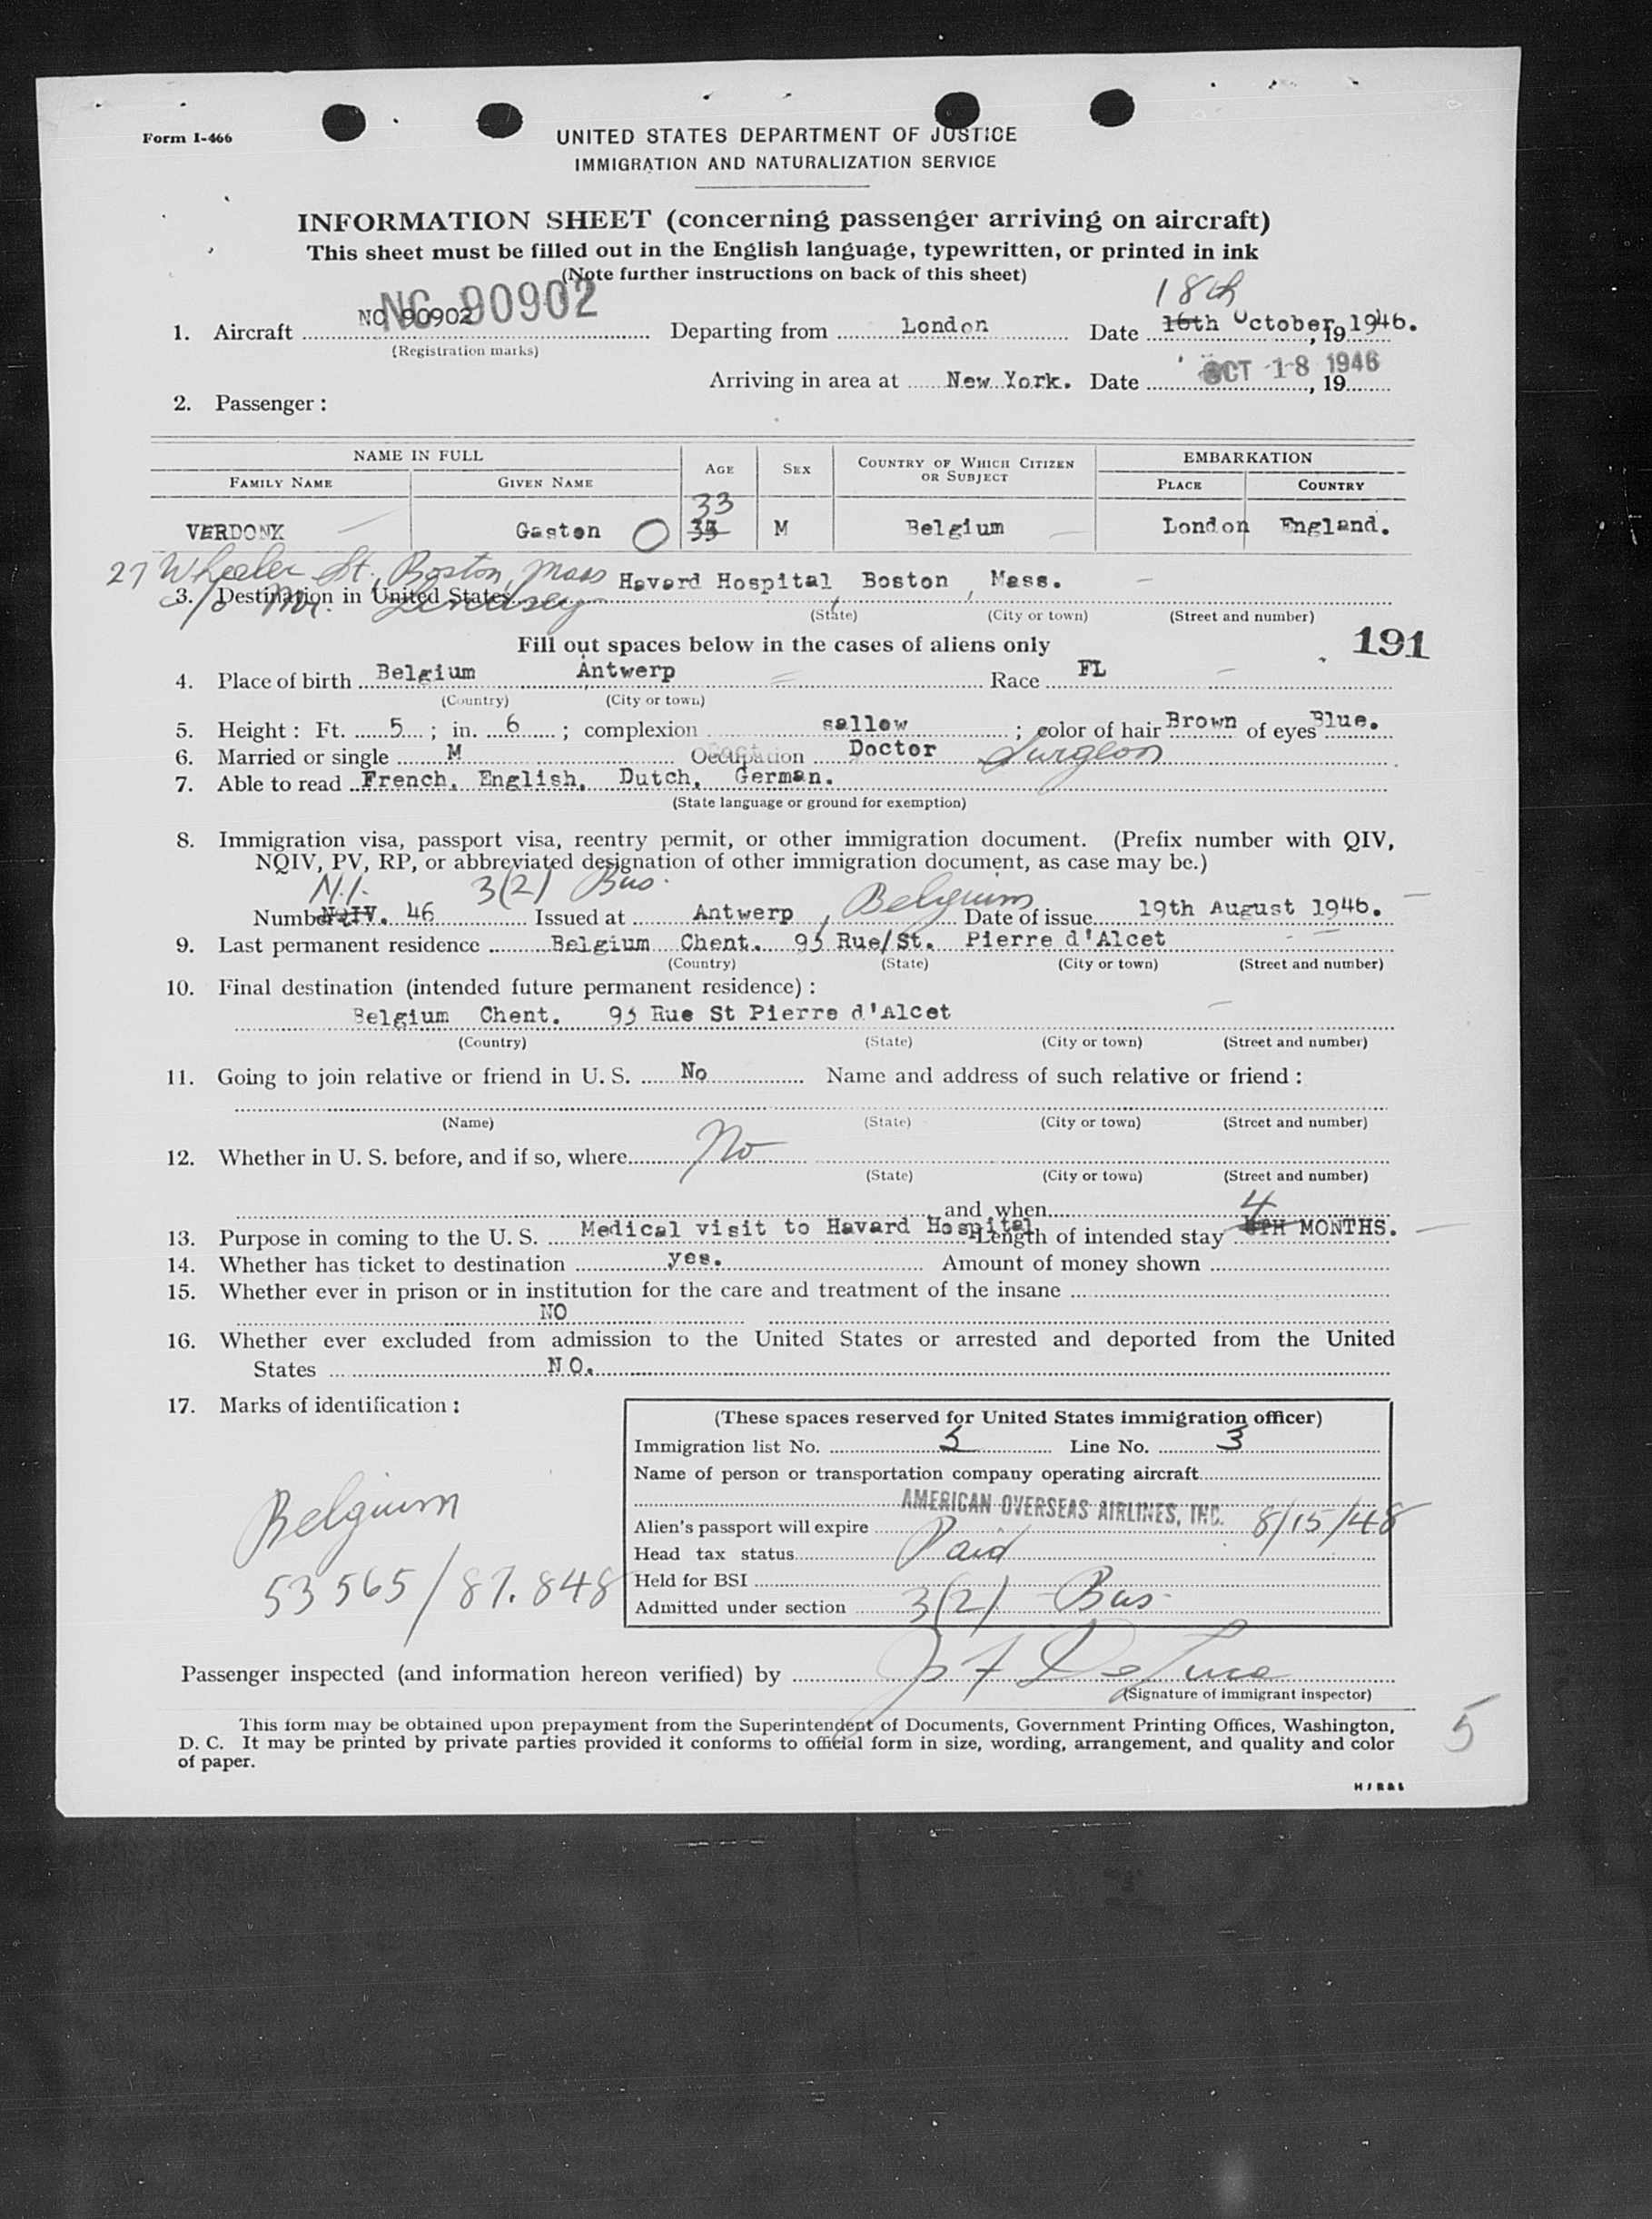 Form I-466
UNITED STATES DEPARTMENT OF JUSTICE
IMMIGRATION AND NATURALIZATION SERVICE
INFORMATION SHEET (concerning passenger arriving on aircraft)
This sheet must be filled out in the English language, typewritten, or printed in ink
(Note further instructions on back of this sheet)
NC 90902
18th
1. Aircraft NC 90902 Departing from London Date 16th October, 19 1946.
(Registration marks)
Arriving in area at New York. Date OCT 18 1946, 19
2. Passenger:
NAME IN FULL AGE SEX COUNTRY OF WHICH CITIZEN OR SUBJECT EMBARKATION
FAMILY NAME GIVEN NAME PLACE COUNTRY
33
VERDONK Gaston O M Belgium London England.
27 Wheeler St. Boston, Mass Havard Hospital Boston, Mass.
3. Destination in United States
c/o Mr. Lindsey
(State) (City or town) (Street and number)
Fill out spaces below in the cases of aliens only 191
4. Place of birth Belgium Antwerp Race FL
(Country) (City or town)
5. Height: Ft. 5; in. 6; complexion sallow; color of hair Brown of eyes Blue.
6. Married or single M Occupation Doctor Surgeon
7. Able to read French, English, Dutch, German.
(State language or ground for exemption)
8. Immigration visa, passport visa, reentry permit, or other immigration document. (Prefix number with QIV,
NQIV, PV, RP, or abbreviated designation of other immigration document, as case may be.)
N.I. 3(2) Bus.
Number NQIV. 46 Issued at Antwerp, Belgium Date of issue 19th August 1946.
9. Last permanent residence Belgium Chent. 93 Rue/St. Pierre d'Alcet
(Country) (State) (City or town) (Street and number)
10. Final destination (intended future permanent residence):
Belgium Chent. 93 Rue St Pierre d'Alcet
(Country) (State) (City or town) (Street and number)
11. Going to join relative or friend in U. S. No Name and address of such relative or friend:
(Name) (State) (City or town) (Street and number)
12. Whether in U. S. before, and if so, where No
(State) (City or town) (Street and number)
and when
4
13. Purpose in coming to the U. S. Medical visit to Havard Hospital Length of intended stay MONTHS.
14. Whether has ticket to destination yes. Amount of money shown
15. Whether ever in prison or in institution for the care and treatment of the insane
NO
16. Whether ever excluded from admission to the United States or arrested and deported from the United
States NO.
17. Marks of identification:
(These spaces reserved for United States immigration officer)
Immigration list No. 5 Line No. 3
Name of person or transportation company operating aircraft
AMERICAN OVERSEAS AIRLINES, INC.
Alien's passport will expire 8/15/48
Head tax status Paid
Held for BSI
Admitted under section 3(2) Bus
Belgium
53565/87.848
Passenger inspected (and information hereon verified) by J F DeLuca
(Signature of immigrant inspector)
This form may be obtained upon prepayment from the Superintendent of Documents, Government Printing Offices, Washington,
D. C. It may be printed by private parties provided it conforms to official form in size, wording, arrangement, and quality and color
of paper.
5